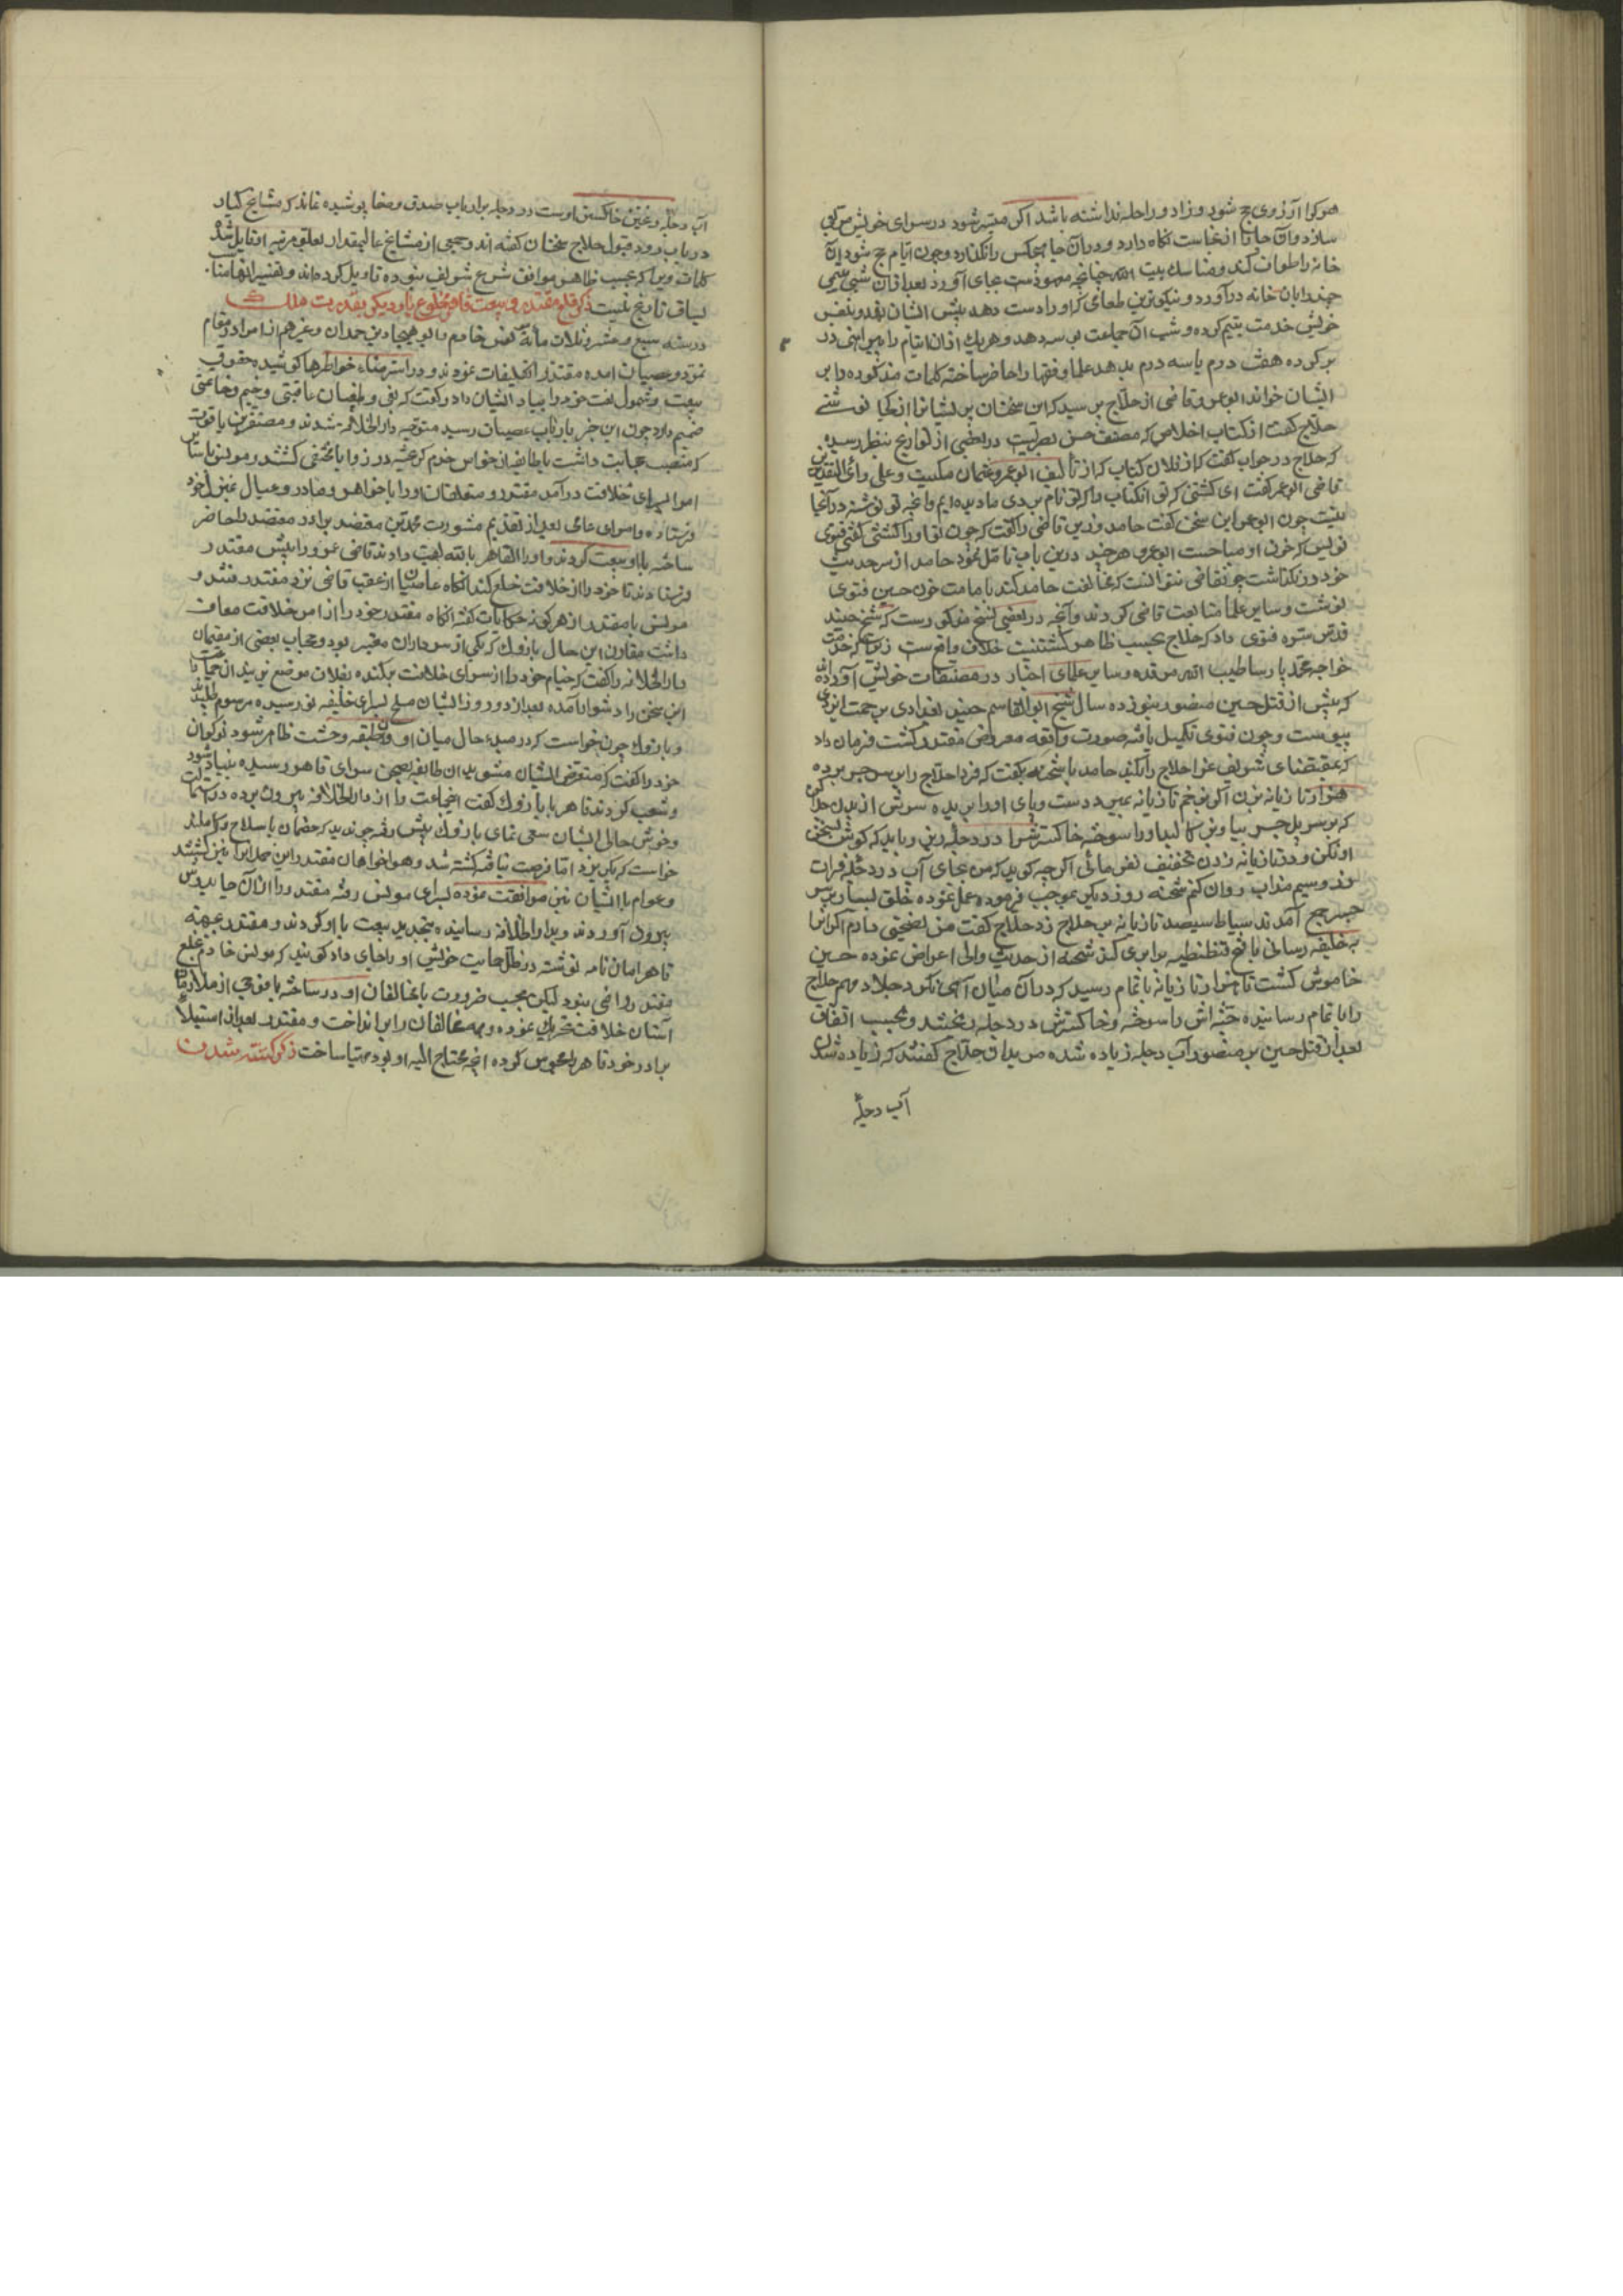 هر کرا آرزوی حج شود و زاد و راحله نداشته باشد اکر میسر شود در سرای خویش مربعی
سازد و آن جا را از نجاست نکاه دارد و در آن جا هیچکس را نکذارد و چون ایام حج شود آن
خانه را طواف کند و مناسک بیت الله چنانچه معهودست بجای آورد بعد از آن سی یتیمی
خود را بان خانه در آورد و نیکوترین طعامی که او را دست دهد پیش ایشان نهد و بنفس
خویش خدمت یتیم کرده و شب آن جماعت بسر دهد و هر یک از آن ایتام را پیراهنی در
بر کرده هفت درم یا سه درم بدهد علما و فقها را حاضر ساخته کلمات مذکوره را بر
ایشان خواند ابو عمرو قاضی از حلاج پرسید که این سخنان پریشانرا از کجا نوشتی
حلاج کفت از کتاب اخلاص که مصنف حسن بصریست در بعضی از تواریخ بنظر رسیده
که حلاج در جواب کفت که از فلان کتاب که از تألیف ابو عمرو عثمان مکیست و علی رای التقدیرین
قاضی ابو عمر کفت ای کشتنی که تو آن کتاب را که تو نام بردی ما دیده ایم و آنچه تو نوشته در آنجا
نیست چون ابو عمر این سخن کفت حامد وزیر قاضی را کفت که چون تو او را کشتنی کفتی فتوی
نویس که خون او مباحست ابو عمرو هر چند درین باب تأمل نمود حامد از سر حدیث
خود در نکذاشت چو قاضی نتوانست که مخالفت حامد کند باباحت خون حسین فتوی
نوشت و سایر علما متابعت قاضی کردند و آنچه در بعضی نسخ مذکورست که شیخ جنید
قدس سره فتوی داد که حلاج بحسب ظاهر کشتنیست خلاف واقعست زیرا که حضرت
خواجه محمد پارسا طیب الله مرقده و سایر علمای اخبار در مصنفات خویش آورده اند
که پیش از قتل حسین منصور بنوزده سال شیخ ابو القاسم جنید بغدادی برحمت ایزدی
پیوست و چون فتوی تکمیل یافته صورت واقعه معروض مقتدر کشت فرمان داد
که بمقتضای شریف غرا حلاج را بکشد حامد با شحنه بکفت که فردا حلاج را بر سر جسر برده
هزار تازیانه بزن اکر بزخم تازیانه نمیرد دست و پای او را بریده سرش از بدن جدا کن
که بر سر پل جسر بیاویز کالبد او را سوخته خاکسترش را در دجله ریز و باید که کوش بسخن
او نکنی و در تازیانه زدن تخفیف نفرمائی اکر چه کوید که من بجای آب در دجله و فرات
زر و سیم مذاب روان کنم شحنه روز دیکر بموجب فرموده عمل نموده خلق بسیار بر سر
جسر جمع آمدند سیاط سیصد تازیانه بر حلاج زد حلاج کفت من نصیحتی دارم اکر آنرا
به خلیفه رسانی با فتح قسطنطنیه برابری کند شحنه از حدیث والی اعراض نموده حسین
خاموش کشت تا هزار تازیانه باتمام رسید که در آن میان آهی نکرد جلاد مهم حلاج
را باتمام رسانیده جثه اش را سوخته و خاکسترش در دجله ریختند و بحسب اتفاق
بعد از قتل حسین بن منصور آب دجله زیاده شده مریدان حلاج کفتند که زیاده شدن
آب دجله
آب دجله و غیره خاکستر اوست در دجله بر ارباب صدق و صفا پوشیده نماند که مشایخ کبار
در باب رد و قبول حلاج سخنان کفته اند و جمعی از مشایخ عالیمقدار بعلو مرتبه او قایل شده
کلمات ویرا که بحسب ظاهر موافق شرع شریف نبوده تأویل کرده اند و تفسیر آنها مناسب
بسیاق تاریخ نیست ذکر خلع مقتدر و بیعت قاهر و مخلوع بار دیکر بقدرت ملک
در سنه سبع و عشر و ثلاث مائه مونس خادم و ابو الهیجا بن حمدان و غیرهم از امرا در مقام
تمرد و عصیان آمده مقتدر را تخلیفات نمودند و در استرضاء خواطرها کوشیده حقوق
بیعت و شمول نعت خود را بیاد ایشان داد و کفت که بغی و طغیان عاقبتی وخیم و خاتمتی
ضمیم دارد چون این خبر بارباب عصیان رسید متوجه دار الخلافه شدند و مظفر بن یاقوت
که منصب حجابت داشت با طایفه از خواص خدم کریخته در زوایا مختفی کشتند و مونس با سایر
امرا بسرای خلافت در آمد مقتدر و متعلقان او را با خواهر و مادر و عیال بمنزل خود
فرستاده و امرای عاصی بعد از تقدیم مشورت محمد بن معتضد برادر مقتدر را حاضر
ساخته با او بیعت کردند و او را القاهر بالله لقب دادند قاضی عمرو را پیش مقتدر
فرستادند تا خود را از خلافت خلع کند آنکاه عاصیان از عقب قاضی نزد مقتدر رفتند و
مونس با مقتدر از هر کونه حکایات کفته آنکاه مقتدر خود را از امر خلافت معاف
داشت مقارن این حال بازوک که یکی از سرداران معتبر بود و حجاب بعضی از مقیمان
دار الخلافه را کفت که خیام خود را از سرای خلافت بر کنده بفلان موضع بزنید آن جماعت را
این سخن را دشوار آمده بعد از دو روز ایشان مسلح بسرای خلیفه نو رسیده مرسوم طلبیدند
و بازوک چون خواست که در مبدء حال میان او و آن طبقه وحشت ظاهر شود نوکران
خود را کفت که متعرض ایشان مشوید آن طایفه بصحن سرای قاهر رسیده بنیاد شور
و شغب کردند قاهر با بازوک کفت این جماعت را از دار الخلافه بیرون برده در استمالت
و خوش حالی ایشان سعی نمای بازوک پیش رفته چون دید که خصمان با سلاح و کاملند
خواست که بکریزد اما فرصت نیافته کشته شد و هواخواهان مقتدر ابن حمدانرا نیز کشتند
و عوام با ایشان نیز موافقت نموده بسرای مونس رفته مقتدر را از آن جا بدوش
بیرون آوردند و بدار الخلافه رسانیده بتجدید بیعت با او کردند و مقتدر بجهة
قاهر امان نامه نوشته در ظل حمایت خویش او را جای داد کویند که مونس خادم بخلع
مقتدر راضی نبود لیکن بحسب ضرورت با مخالفان او در ساخته با فوجی از ملازمان
آستان خلافت تحریک نموده و همه مخالفان را بر انداخت و مقتدر بعد از استیلا
برادر خود قاهر را محبوس کرده آنچه محتاج الیه او بود مهیا ساخت ذکر کشته شدن